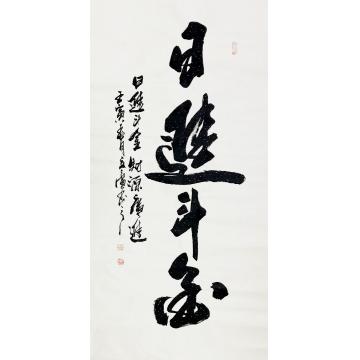 日進斗金
日進斗金財源廣進
壬寅